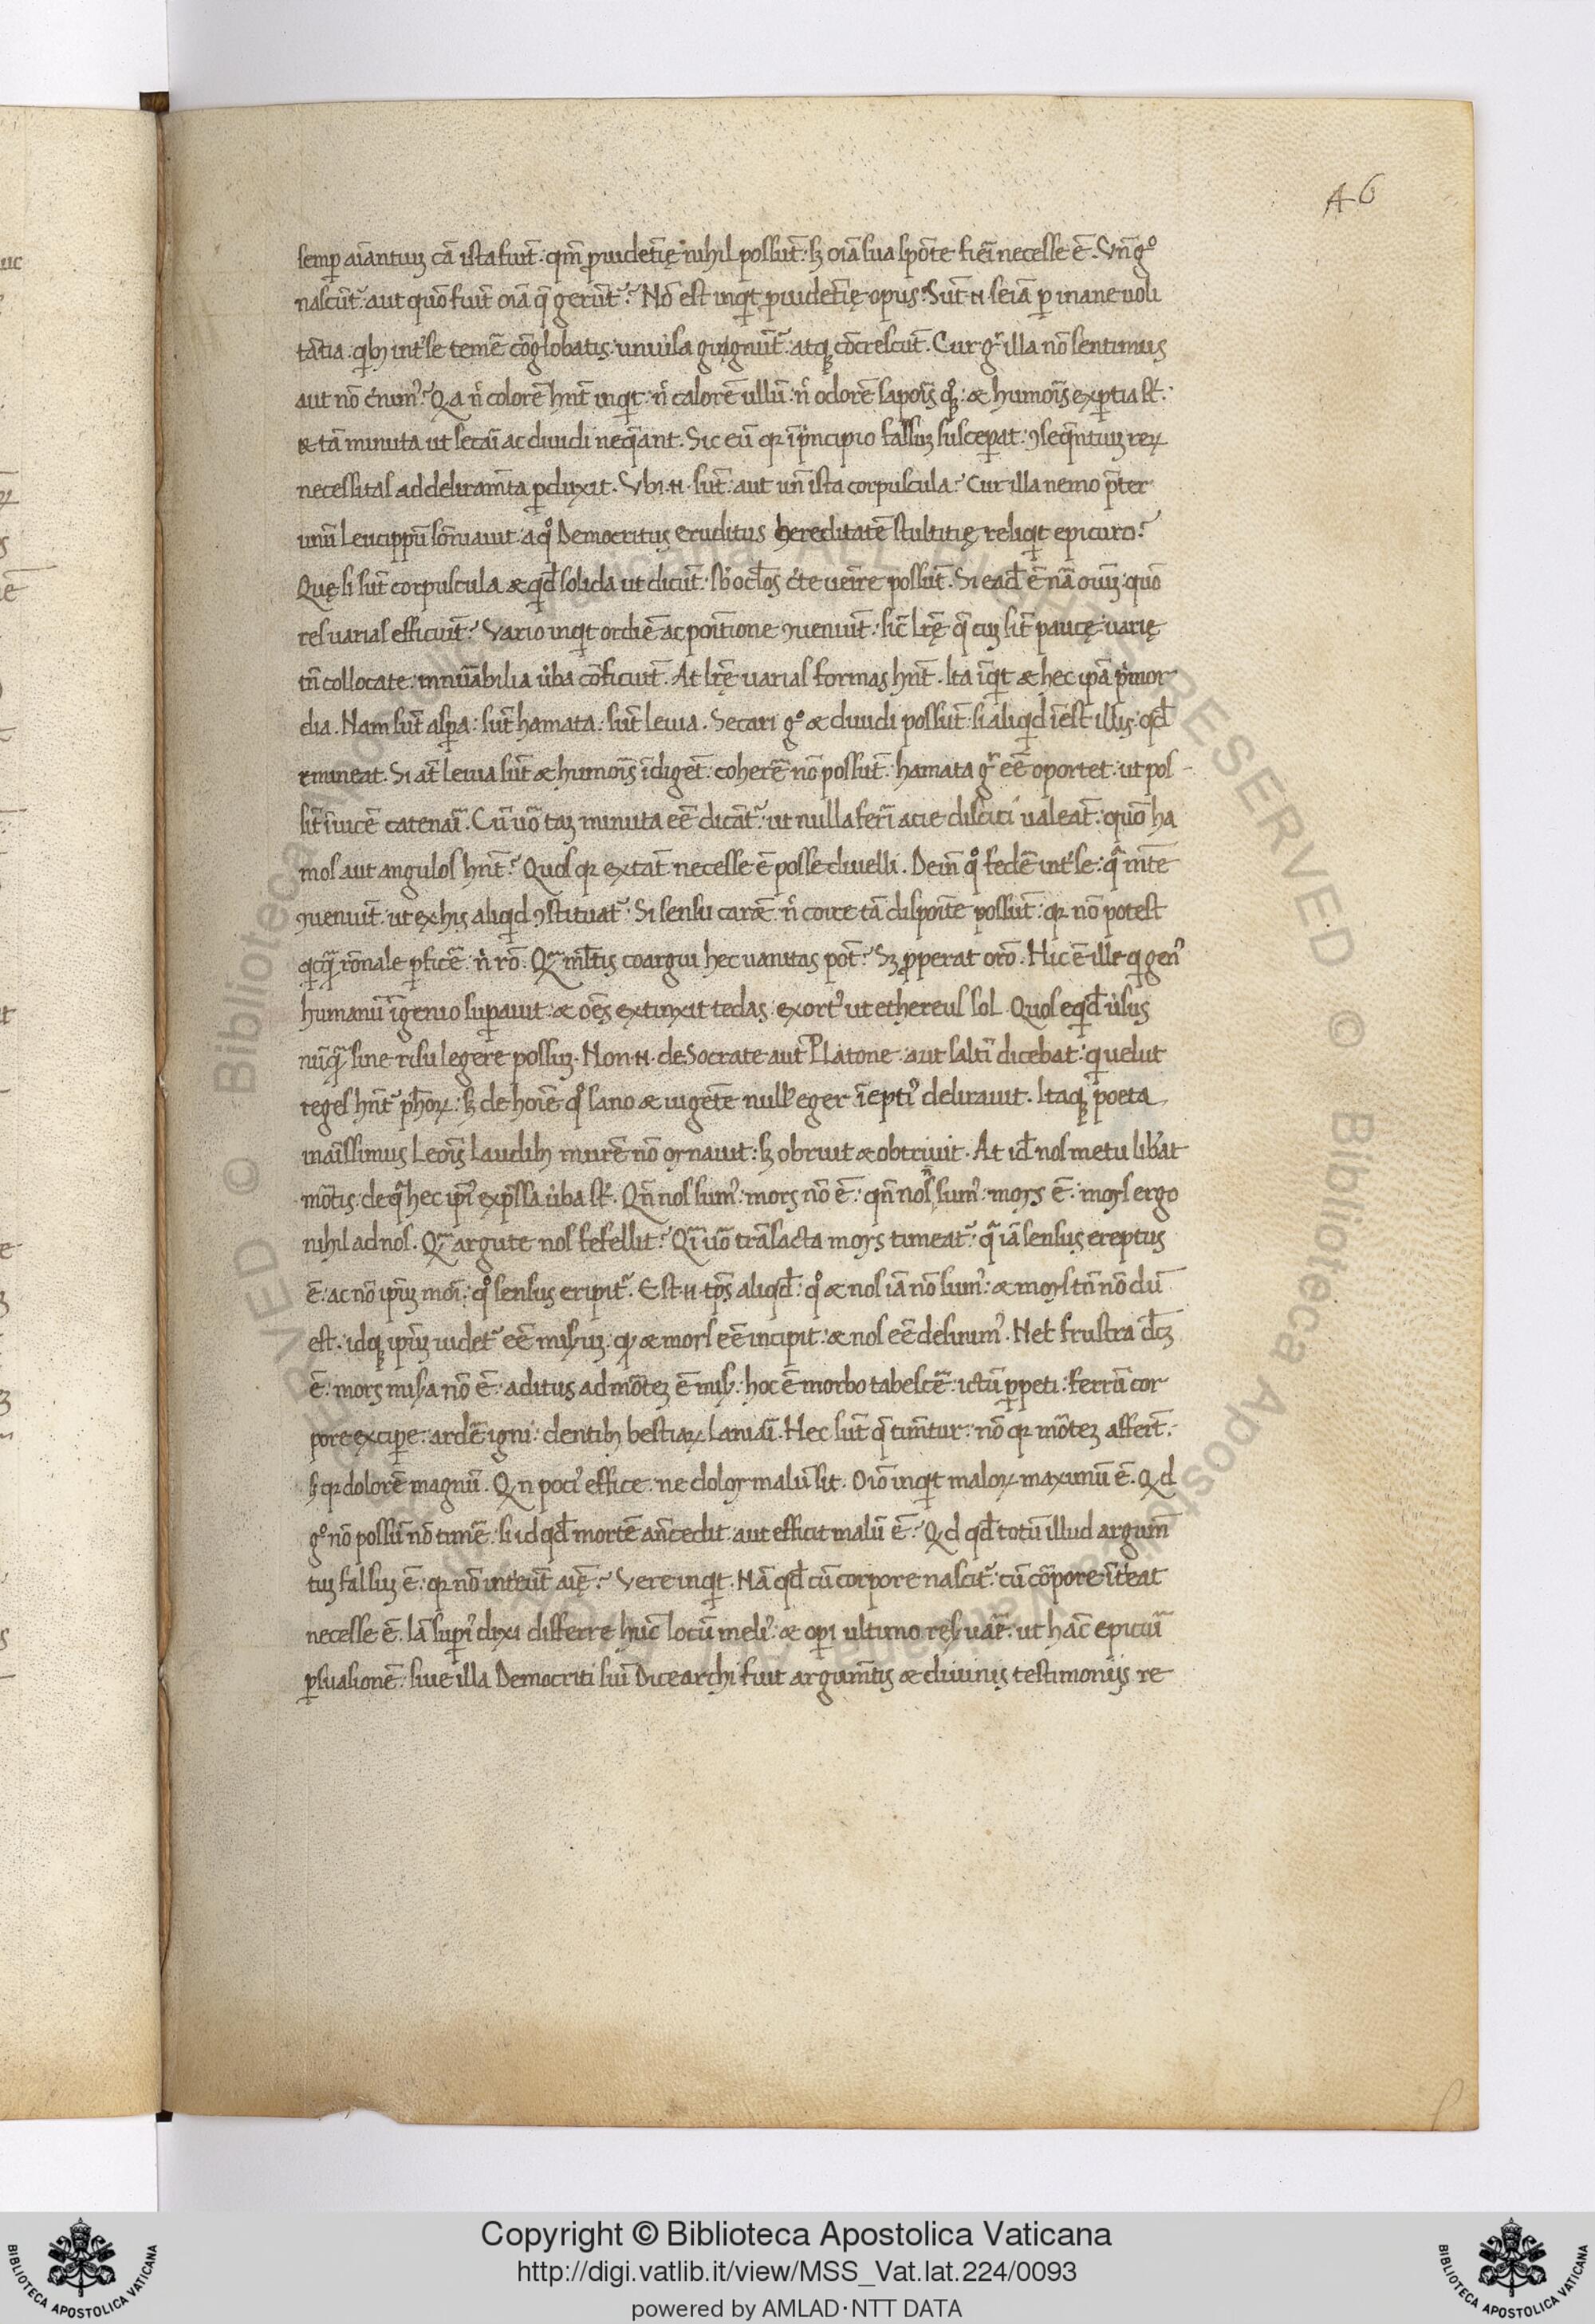 46
semp̱ aiantuꝫ cā ista fiūt. qm̄ ꝓuidetīę nihil possūt. sꝫ oīa sua spōte fieī necesse ē. Vn̄ gͦ
nascūt᷑. aut quō fiūt oīa q̄ gerūt᷑? Nō est inqͥt ꝓuidetīę opus. Sūt .n. seīa ꝑ inane uoli
tātia. qͥbꝫ int᷑ se temē cōglobatis. uniu᷑sa gignūt᷑. atqꝫ cōcrescūt. Cur gͦ illa nō sentimus
aut nō c᷑nimꝰ? Qa n̄ colorē hn̄t inqͥt. n̄ calorē ullū. n̄ odorē sapoīs qͦꝫ. & humoīs exꝑtia st̄.
& tā minuta ut secaī ac diuidi neqͣant. Sic eū qꝛ ī pͥncipio falsuꝫ suscep̱at. ꝯseqn̄tiuꝫ reꝝ
necessitas ad deliram̄ta ꝑduxit. Vbi .n. sūt. aut un̄ ista corpuscula? Cur illa nemo p̄ter
unū Leucippū sōniauit. a qͦ Democritus eruditus hereditatē stultitię reliqͥt epicuro?
Quę si sūt corpuscula & qͥd̄ solida ut dicūt. sb̄ oc̄los c᷑te ueīre possūt. Si ead̄ ē nā oīuꝫ. quō
res uarias efficiūt? Vario inqͥt ordiē ac poītione ꝯueniūt. sic̄ lr̄ę q̄ cuꝫ sīt paucę. uarię
tn̄ collocate. innūabilia u᷑ba cōficiūt. At lr̄ę uarias formas hn̄t. Ita īqͥt & hec ip̄a pͥmor
dia. Nam sūt asꝑa. sūt hamata. sūt leuia. Secari gͦ & diuidi possūt. si aliqͥd īest illis. qd̄
emineat. Si at̄ leuia sūt & humoīs īdigēt. coherē nō possūt. hamata gͦ ēē oportet. ut pos-
sīt īuicē catenaī. Cū u᷑o taꝫ minuta ēē dicāt᷑. ut nulla ferī acie dissici ualeāt. quō ha
mos aut angulos hn̄t? Quos qꝛ extāt necesse ē posse diuelli. Dein̄ qͦ fedē int᷑ se. qͣ m̄te
ꝯueniūt. ut ex his aliqͥd ꝯstituat᷑? Si sensu carēt. n̄ coire tā dispoīte possūt. qꝛ nō potest
qͥcqͣ rōnale ꝑficē. n̄ rō. Qͣ ml̄tis coargui hec uanitas pōt? Sꝫ ꝓperat orō. Hic ē ille qͥ genꝰ
humanū īgenio suꝑauit. & oēs extinxit tedas. exortꝰ ut ethereus sol. Quos eqͥd̄ u᷑sus
nūqͣ sine risu legere possuꝫ. Non .n. de Socrate aut Platone aut saltī dicebat. qͥ uelut
reges hn̄t᷑ ph̄oꝝ. sꝫ de hoīe qͦ sano & uigēte nullꝰ eger īeptiꝰ delirauit. Itaqꝫ poeta
inaīssimus Leoīs laudibꝫ murē nō ornauit. sꝫ obruit & obtriuit. At id̄ nos metu lib᷑at
mōtis. de qͣ hec ipīꝰ exp̄ssa u᷑ba st̄. Qn̄ nos sumꝰ. mors nō ē. qn̄ nos n̄ sumꝰ. mors ē. mors ergo
nihil ad nos. Qͣ argute nos fefellit? Qͣī u᷑o trāsacta mors timeat᷑. qͣ iā sensus ereptus
ē. ac nō ip̄uꝫ moī. qͦ sensus eripit᷑. Est .n. tp̄s aliqd̄. qͦ & nos iā nō sumꝰ. & mors tn̄ nō dū
est. idqꝫ ip̄uꝫ uidet᷑ ēē mis᷑uꝫ. qꝛ & mors ēē incipit. & nos ēē desinimꝰ. Nec frustra dc̄ꝫ
ē. mors mis᷑a nō ē. aditus ad mōteꝫ ē mis᷑. hoc ē morbo tabescē. ictū ꝑpeti. ferrū cor
pore excipe. ardē igni. dentibꝫ bestiaꝝ laniaī. Hec sūt q̄ tim̄tur. nō qꝛ mōteꝫ affert.
sꝫ qꝛ dolorē magnū. Qͥn pociꝰ effice ne dolor malū sit. Oīō inqͥt maloꝝ maximū ē. Qͥd
gͦ nō possū nō timē. si id qd̄ mortē an̄cedit. aut efficit malū ē? Qͥd qd̄ totū illud argum̄
tuꝫ falsuꝫ ē. qꝛ nō int᷑eūt aīę? Vere inqͥt. Nā qd̄ cū corpore nascit᷑. cū cōpore īt᷑eat
necesse ē. Iā suꝑiꝰ dixi differre hūc locū meliꝰ. & oꝑi ultimo res᷑uāe. ut hāc epicuī
ꝑsuasionē. siue illa Democriti siūi Dicearchi fuit argum̄tis & diuinis testimoniis re
Copyright © Biblioteca Apostolica Vaticana
http://digi.vatlib.it/view/MSS_Vat.lat.224/0093
powered by AMLAD·NTT DATA